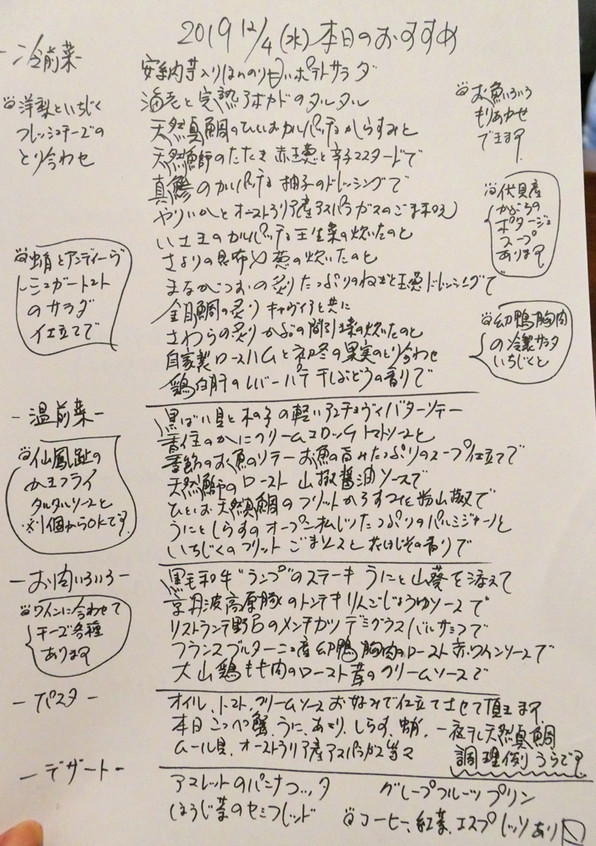 2019 12/4 (水) 本日のおすすめ
- 冷前菜 -
安納芋入りほんのり甘いポテトサラダ
海老と完熟アボカドのタルタル
天然真鯛のカルパッチョ からすみと
天然鰤のたたき 赤玉葱と辛子マスタードで
真鯵のカルパッチョ 柚子のドレッシングで
やりいかとオーストラリア産アスパラガスのごま和え
のカルパッチョ 壬生菜の炊いたのと
さよりの昆布〆 葱の炊いたのと
まながつおの炙り たっぷりのねぎと玉葱ドレッシングで
金目鯛の炙り キャヴィアと共に
さわらの炙り かぶの間引き菜の炊いたのと
自家製ロースハムと初冬の果実のとり合わせ
鶏白肝のレバーパテ 干しぶどうの香りで
洋梨といちじく
フレッシュチーズの
とり合わせ
蛸とアンディーヴ
フルーツトマト
のサラダ
仕立てで
お魚いろいろ
もりあわせ
できます
伏見産
かぶらの
ポタージュ
スープ
あります
幼鴨胸肉
の冷製サラダ
いちじくと
- 温前菜 -
黒ばい貝と木の子の軽いアンチョヴィバターソテー
香住のかにクリームコロッケ トマトソースと
季節のお魚のソテー お魚の旨みたっぷりのスープ仕立てで
天然鰤のロースト 山椒醤油ソースで
ひとしお天然真鯛のフリット からすみと粉山椒で
うにとしらすのオーブン たっぷりのパルミジャーノと
いちじくのフリット ごまソースと花ほじその香りで
仙鳳趾の
かきフライ
タルタルソースと
※1個からOKです
- お肉いろいろ -
黒毛和牛"ランプ"のステーキ うにと山葵を添えて
京丹波高原豚のトンテキ りんごじょうゆソースで
リストランテ野呂のメンチカツ デミグラスバルサミコで
フランスブルターニュ産 幼鴨胸肉のロースト 赤ワインソースで
大山鶏もも肉のロースト 茸のクリームソースで
ワインに合わせて
チーズ各種
あります
- パスタ -
オイル、トマト、クリームソース お好みで仕立てさせて頂きます
本日 こっぺ蟹、うに、あさり、しらす、蛸、一夜干し天然真鯛
ムール貝、オーストラリア産アスパラガス等々
調理例 うらです
- デザート -
のパンナコッタ
グレープフルーツプリン
ほうじ茶のセミフレッド
コーヒー、紅茶、エスプレッソあり